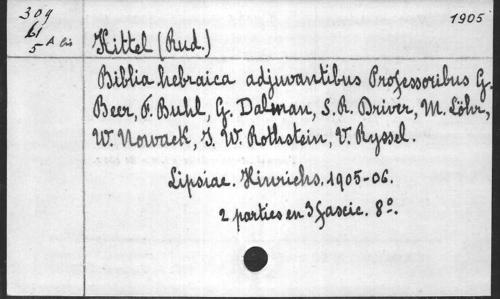 309
61
5 A bis
1905
Kittel (Rud.)
Biblia hebraica adjuvantibus Professoribus G.
Beer, F. Buhl, G. Dalman, S.R. Driver, M. Löhr,
W. Nowack, J. W. Rothstein, V. Ryssel.
Lipsiae. Hinrichs. 1905-06.
2 parties en 3 fascic. 8º.